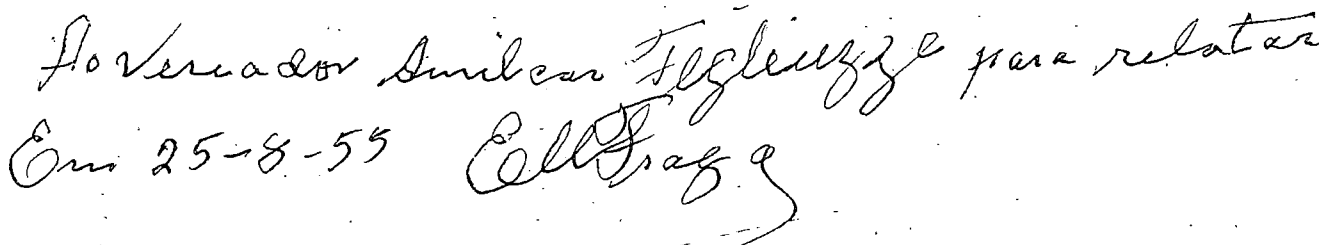 Ao Vereador Amilcar Figliuzzi para relatar
Em 25-8-55 Ell Fraga